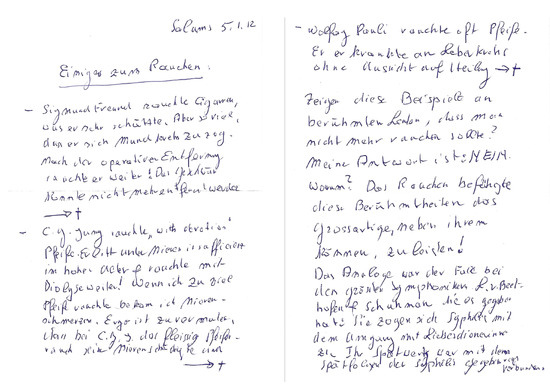 Salams 5.1.12
Einiges zum Rauchen.
- Sigmund Freund rauchte Cigarren,
was er sehr schätzte. Aber so viel,
dass er sich Mundkrebs zu zog.
Nach der operativen Entfernung
rauchte er weiter! Das
konnte nicht mehr entfernt werden
→ †
- C. G. Jung rauchte "with devotion"
Pfeife. Er litt unter Niereninsuffizienz
im hohen Alter & rauchte mit
Wenn ich zu viel
Pfeife rauchte bekam ich Nieren-
schmerzen. Ergo ist zu vermuten,
dass bei C. G. J. das fleissig Pfeifen-
rauchen seine
→ †
- Wolfgang Pauli rauchte oft Pfeife.
Er erkrankte an Leberkrebs
ohne Aussicht auf Heilung → †
Zeigen diese Beispiele an
berühmten Leuten, dass man
nicht mehr rauchen sollte?
Meine Antwort ist: NEIN.
Warum? Das Rauchen befähigte
diese Berühmtheiten das
Grossartige, neben ihrem
Können, zu leisten!
Das Analoge war der Fall bei
den grössten Symphonikern L. v. Beet-
hofen & Schumann die es gegeben
hat: Sie zogen sich Syphilis mit
dem Umgang mit
zu. Ihr Spätwerk war mit dem
Spätfolgen der Syphilis
verbunden